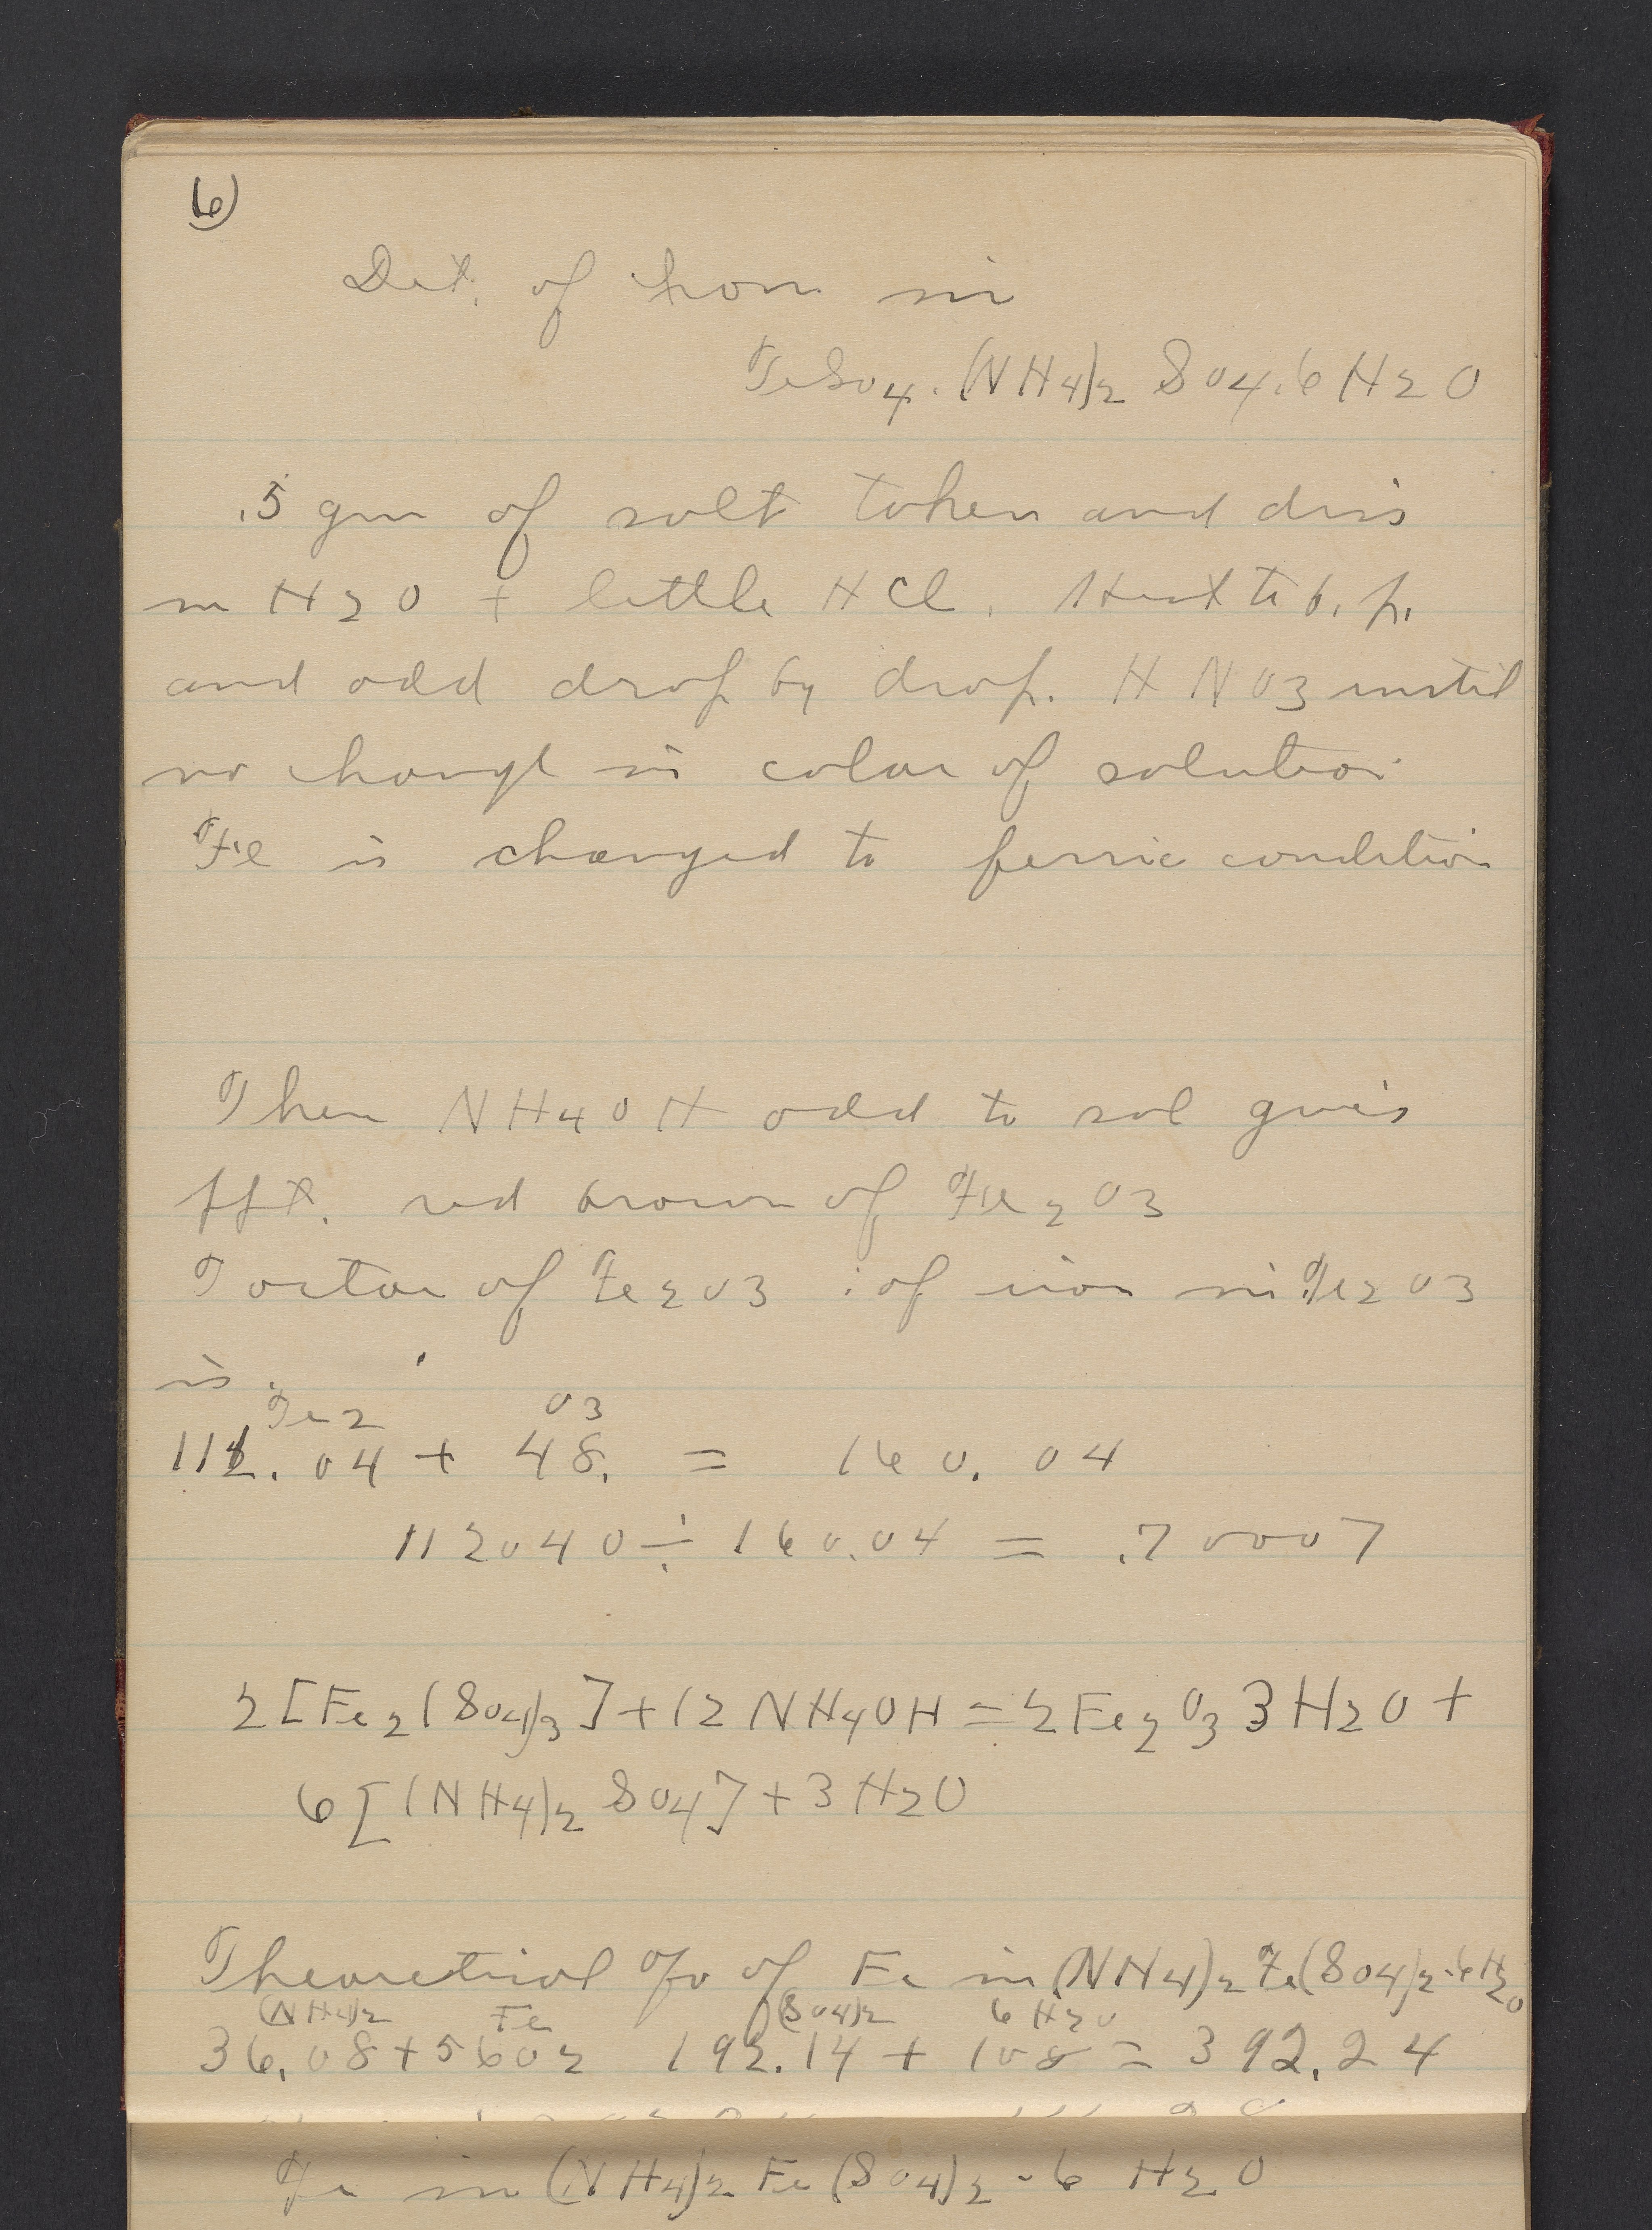 6)
Det. of Iron in
FeSO4.(NH4)2 SO4.6H2O
.5 gm of salt taken and dis
in H2O + little HCl. Heat to b.p.
and add drop by drop. HNO3 until
no change in color of solution
Fe is changed to ferric condition
Then NH4OH add to sol gives
ppt. red brown of Fe2O3
Factor of Fe2O3 : of iron in Fe2O3
is.
Fe2 O3
112.04 + 48. = 160.04
112040 ÷ 160.04 = .70007
2[Fe2(SO4)3] + 12NH4OH = 2Fe2O3 3H2O +
6[(NH4)2 SO4] + 3H2O
Theoretical % of Fe in (NH4)2 Fe(SO4)2.6H2O
(NH4)2 Fe (SO4)2 6H2O
36.08 + 5602 192.14 + 108 = 392.24
Fe in (NH4)2 Fe (SO4)2 - 6 H2O